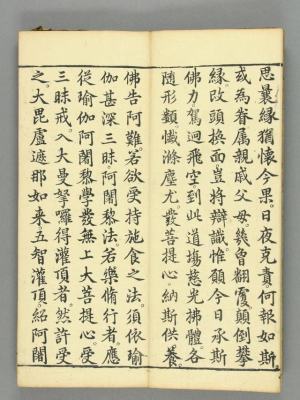 思曩緣猶懷今果。日夜克責何報如斯
或為眷屬親戚父母㷀魯翻覆顛倒攀
緣改頭換面豈將辯識惟願今日承斯
佛力駕迴飛空到此道場慈光拂體各
隨形顴懺滌塵尤。發菩提心。納斯供養。
佛告阿難。若欲受持施食之法。須依瑜
伽甚深三昧。阿闍黎法。若樂脩行者。應
從瑜伽阿闍黎學發無上大菩提心。受
三昧戒。入大曼拏囉得灌頂者。然許受
之。大毘盧遮那如來五智灌頂。紹阿闍